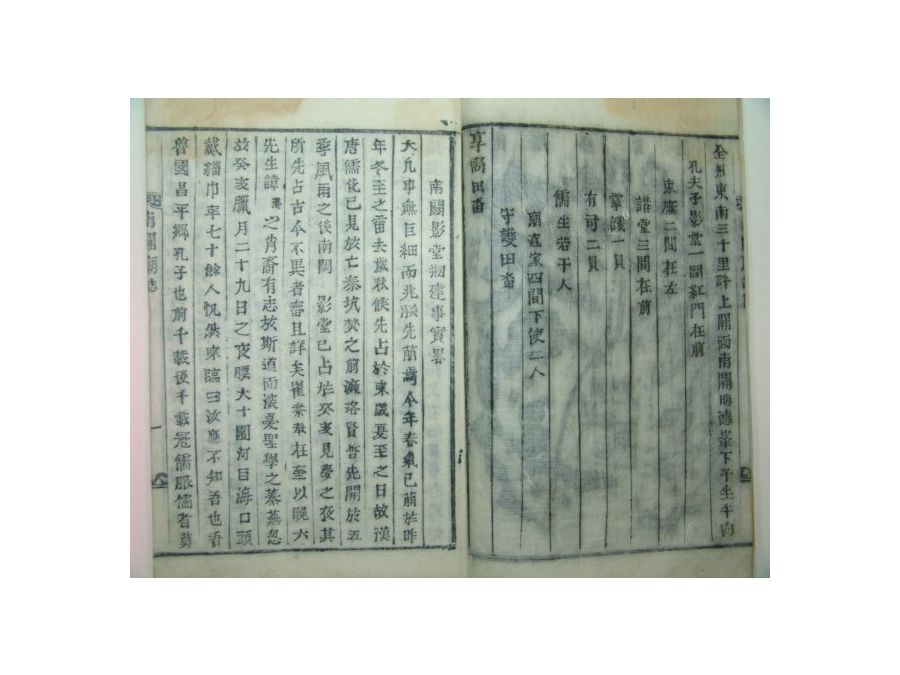 全州東南三十里許上關面南關明德峯下子坐午向
孔夫子影堂一間紅門在前
東廡二間在左
講堂三間在前
掌議一員
有司二員
儒生若干人
廟直家四間下使二人
守護田畓
享需田畓
南關影堂刱建事實畧
大凡事無巨細而兆眹先萌焉今年春氣已萌於昨
年冬至之雷去歲秋候先占於東歲夏至之日故漢
唐儒化已見於亡秦坑焚之前濂洛賢哲先開於五
季風雨之後南關 影堂已占於癸亥見夢之夜其
所先占古今不異者審且詳矣崔 在至以晩六
先生諱 之肖裔有志於斯道而深憂聖學之蓁蕪忽
於癸亥臘月二十九日之夜腰大十圍河目海口頭
戴緇巾年七十餘人怳然來臨曰汝應不知吾也吾
魯國昌平鄕孔子也前千載後千載冠儒服儒者莫
南關廟誌
一